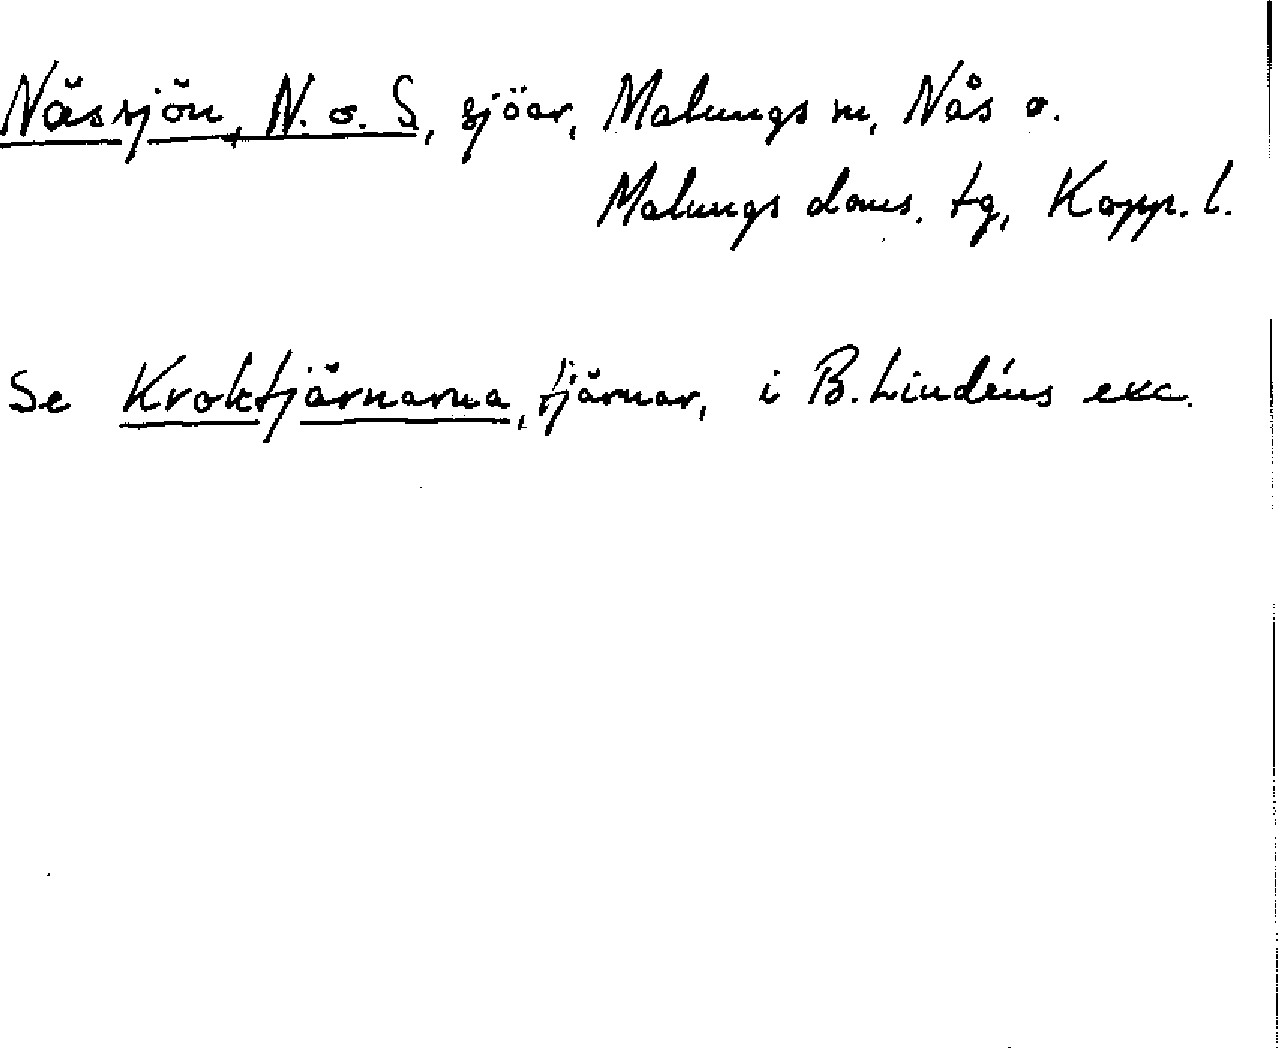 Nässjön, N. o. S, sjöar, Malungs sn, Nås o.
Malungs doms. tg, Kopp. l.
Se Kroktjärnarna, tjärnar, i B. Lindéns exc.